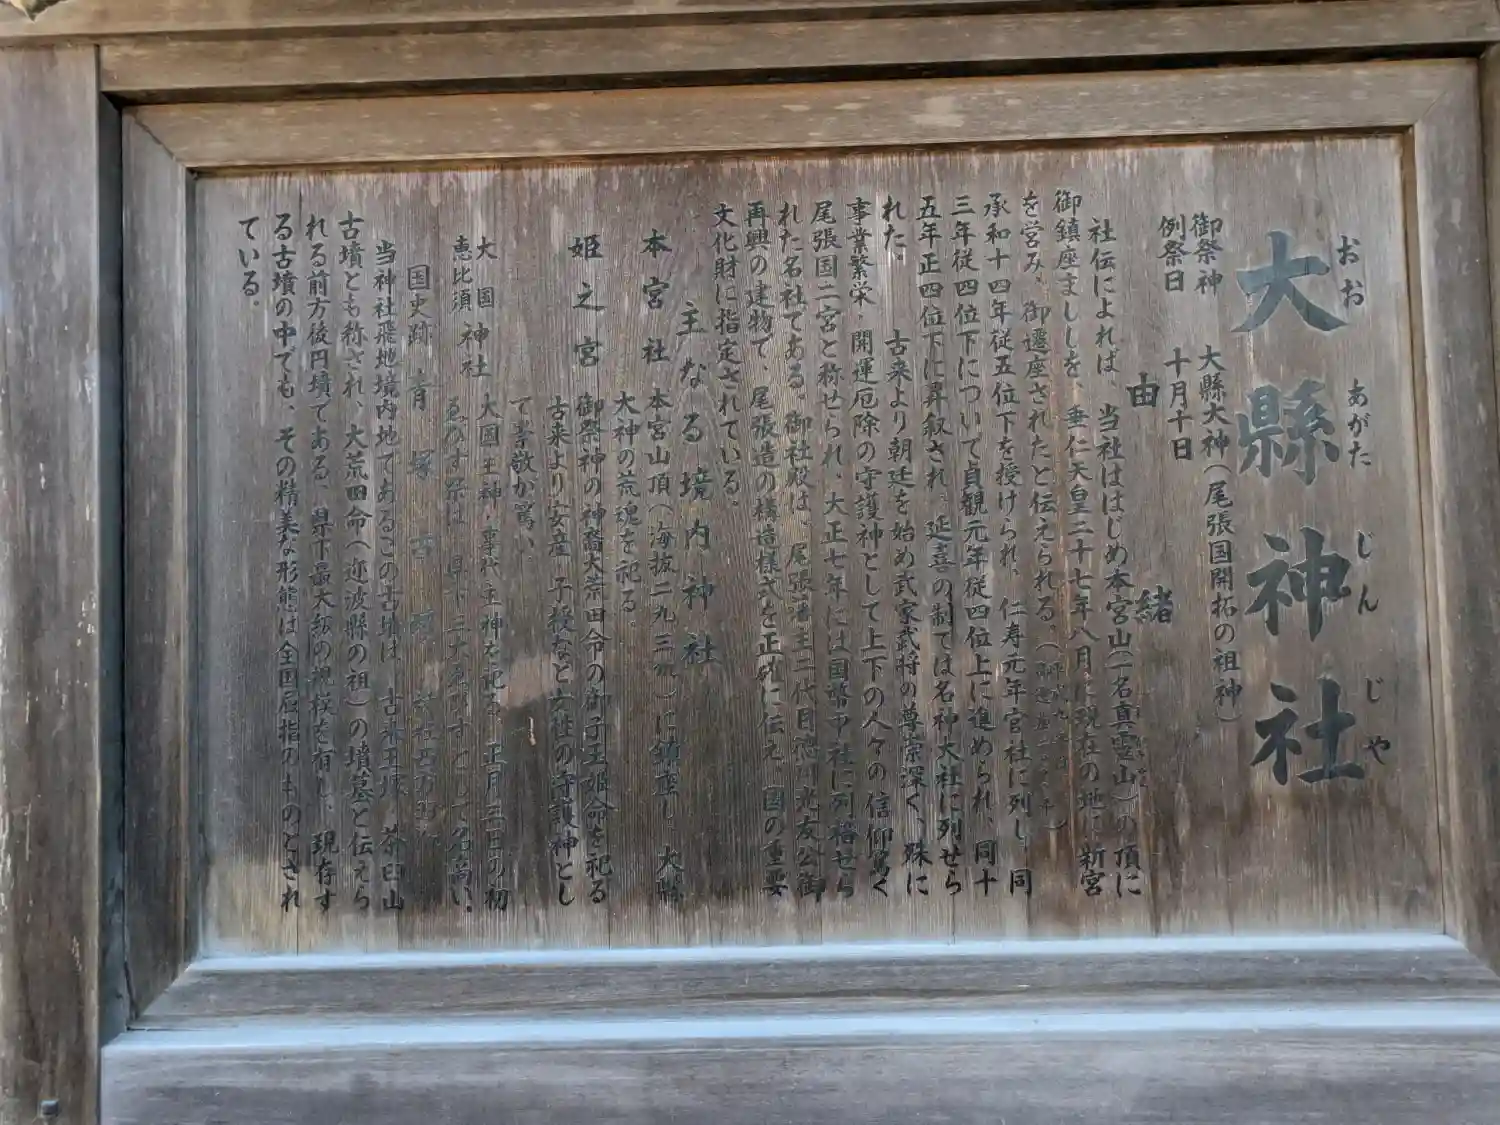 大縣神社
おお あがた じん じや
御祭神 大縣大神(尾張国開拓の祖神)
例祭日 十月十日
由緒
社伝によれば、当社ははじめ本宮山(一名真霊山)の頂に
御鎮座ましましを、垂仁天皇二十七年八月に現在の地に新宮
を営み、御遷座されたと伝えられる。
承和十四年従五位下を授けられ、仁寿元年官社に列し、同
三年従四位下についで貞観元年従四位上に進められ、同十
五年正四位下に昇叙され、延喜の制では名神大社に列せら
れた。 古来より朝廷を始め武家武将の尊崇深く、殊に
事業繁栄・開運厄除の守護神として上下の人々の信仰篤く
尾張国二宮と称せられ、大正七年には国幣中社に列格せら
れた名社である。御社殿は、尾張藩主二代目徳川光友公御
再興の建物で、尾張造の構造様式を正確に伝え、国の重要
文化財に指定されている。
主なる境内神社
本宮社 本宮山頂(海抜二九三m)に鎮座し、大縣
大神の荒魂を祀る。
姫之宮 御祭神の神裔大荒田命の御子玉姫命を祀る
古来より安産・子授など女性の守護神とし
て崇敬が篤い
大国 恵比須 神社 大国主神・事代主神を祀る。正月三日の初
ゑびす祭は、県下三大ゑびすとして名高い。
国史跡 青塚古墳
当神社飛地境内地であるこの古墳は、古来王塚、茶臼山
古墳とも称され、大荒田命(迩波縣の祖)の墳墓と伝えら
れる前方後円墳である。県下最大級の規模を有し、現存す
る古墳の中でも、その精美な形態は全国屈指のものとされ
ている。